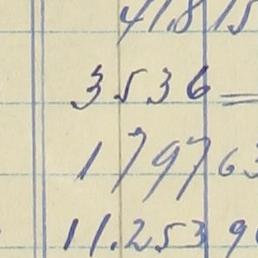 41.815
3536 =
1797 63
11.253 90